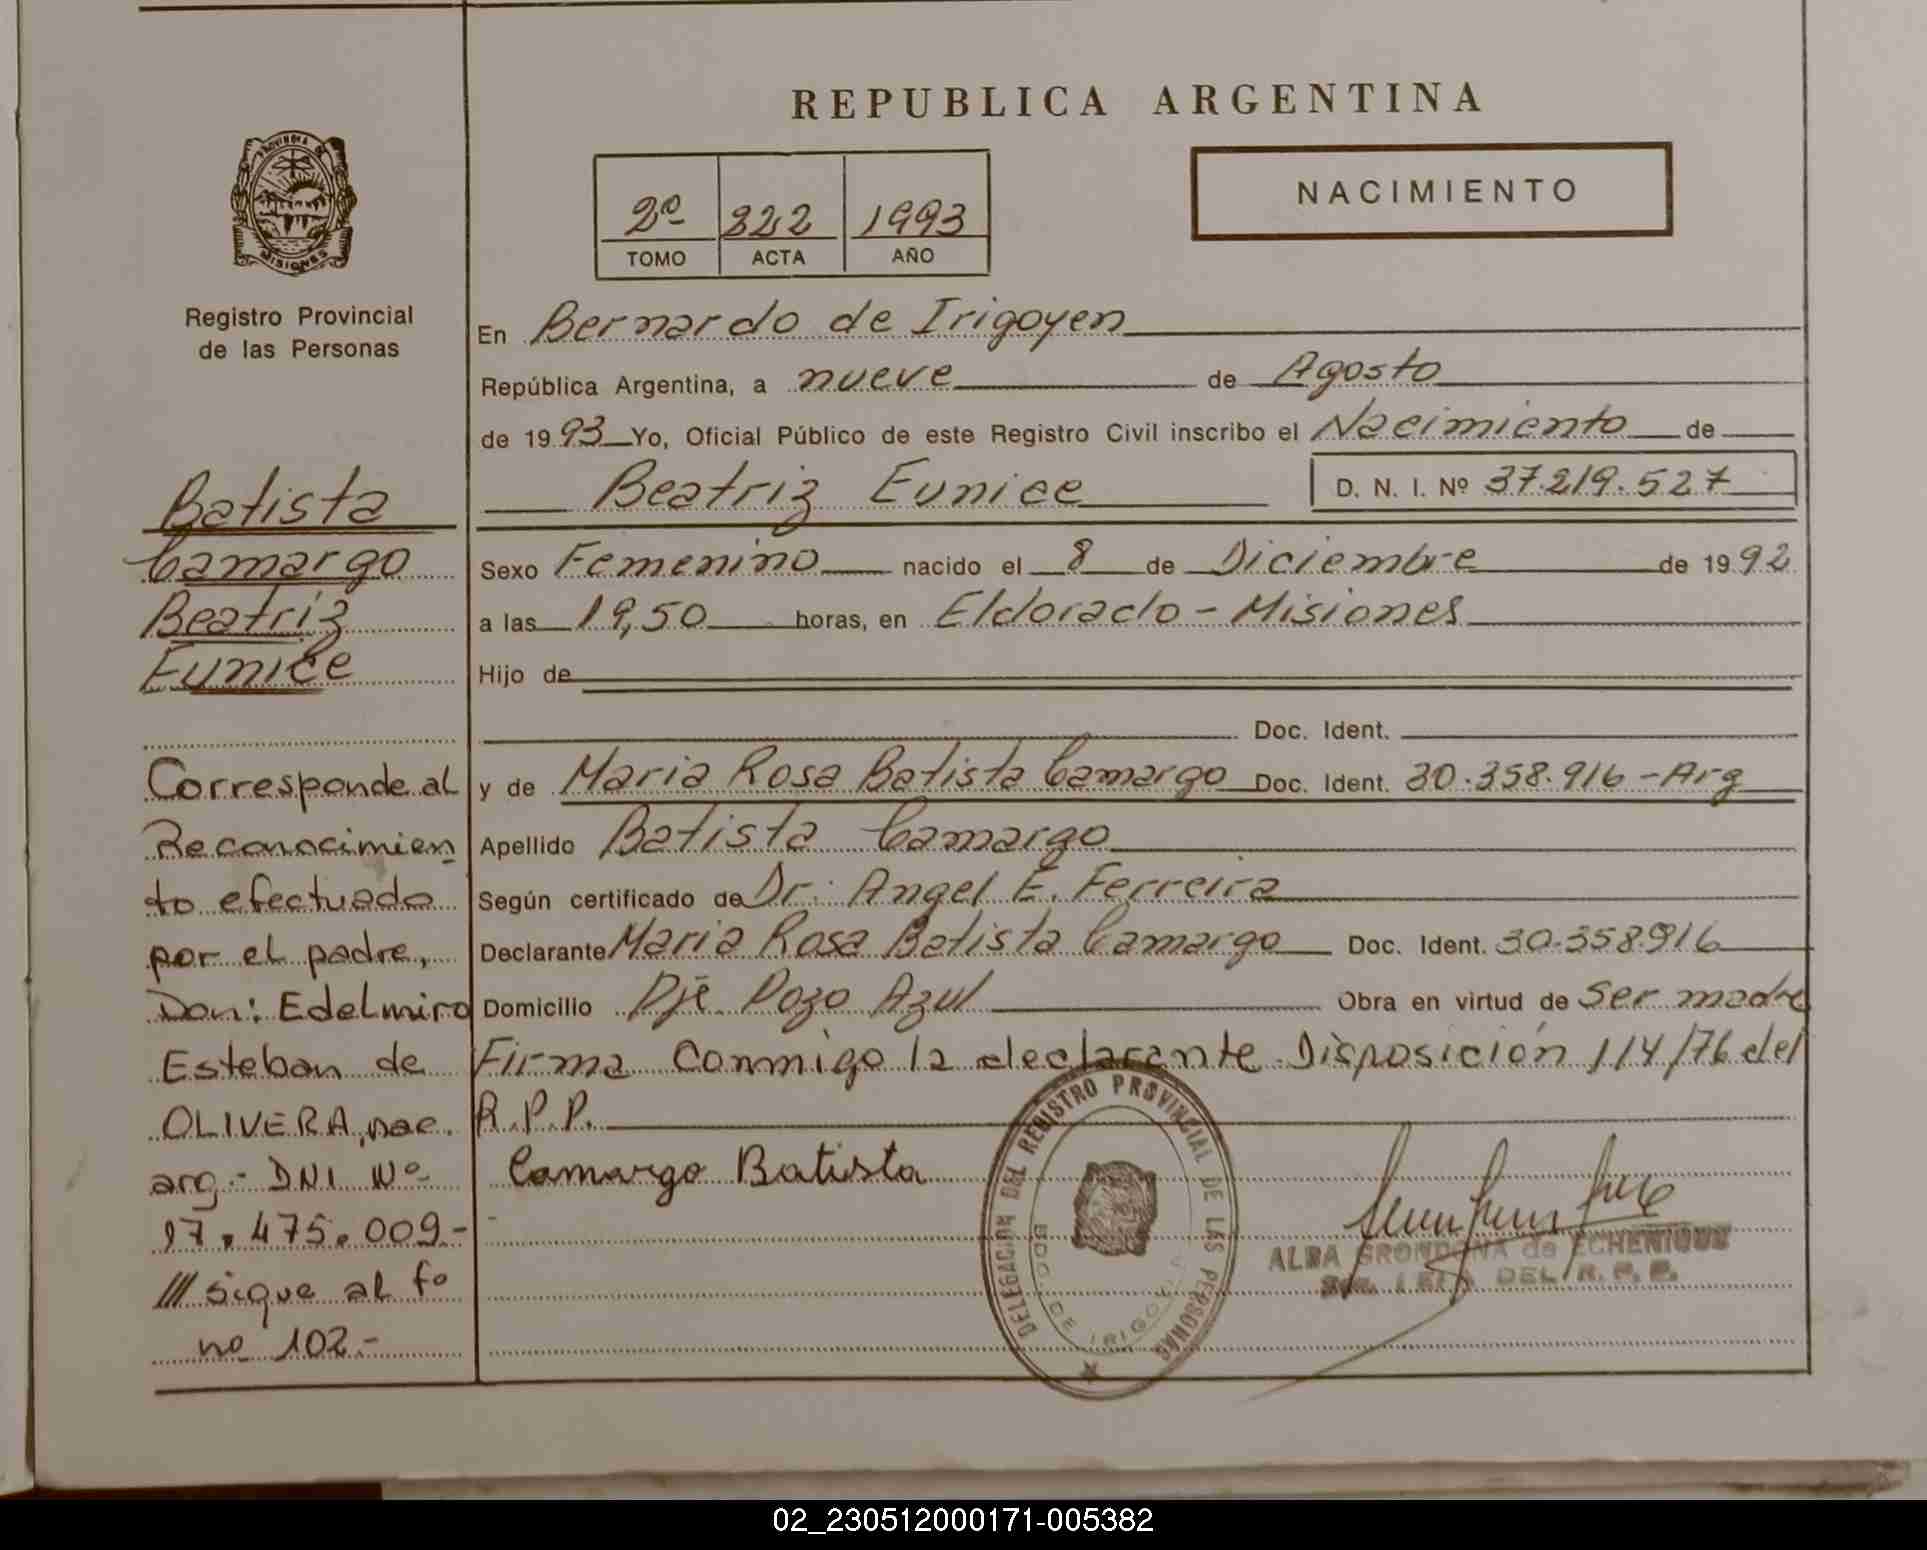 REPUBLICA ARGENTINA
NACIMIENTO
2º 222 1993
TOMO ACTA AÑO
PROVINCIA DE
MISIONES
Registro Provincial
de las Personas
Batista
Camargo
Beatriz
Eunice
Corresponde al
Reconocimien
to efectuado
por el padre,
Don: Edelmiro
Esteban de
OLIVERA, nac.
arg.- DNI Nº
17.475.009-
/// sigue al fº
nº 102.-
En Bernardo de Irigoyen
República Argentina, a nueve de Agosto
de 1993 Yo, Oficial Público de este Registro Civil inscribo el Nacimiento de
Beatriz Eunice D. N. I. Nº 37.219.527
Sexo Femenino nacido el 8 de Diciembre de 1992
a las 19,50 horas, en Eldorado - Misiones
Hijo de
Doc. Ident.
y de Maria Rosa Batista Camargo Doc. Ident. 30.358.916 - Arg
Apellido Batista Camargo
Según certificado de Dr. Angel E. Ferreira
Declarante Maria Rosa Batista Camargo Doc. Ident. 30.358.916
Domicilio Pje Pozo Azul Obra en virtud de Ser madre
Firma Conmigo la declarante. Disposición 114/76 del
R.P.P.
Camargo Batista
DELEGACION DEL REGISTRO PROVINCIAL DE LAS PERSONAS
BDO. DE IRIGOYEN
ALBA GRONDONA de ECHENIQUE
DEL R. P. P.
02_230512000171-005382